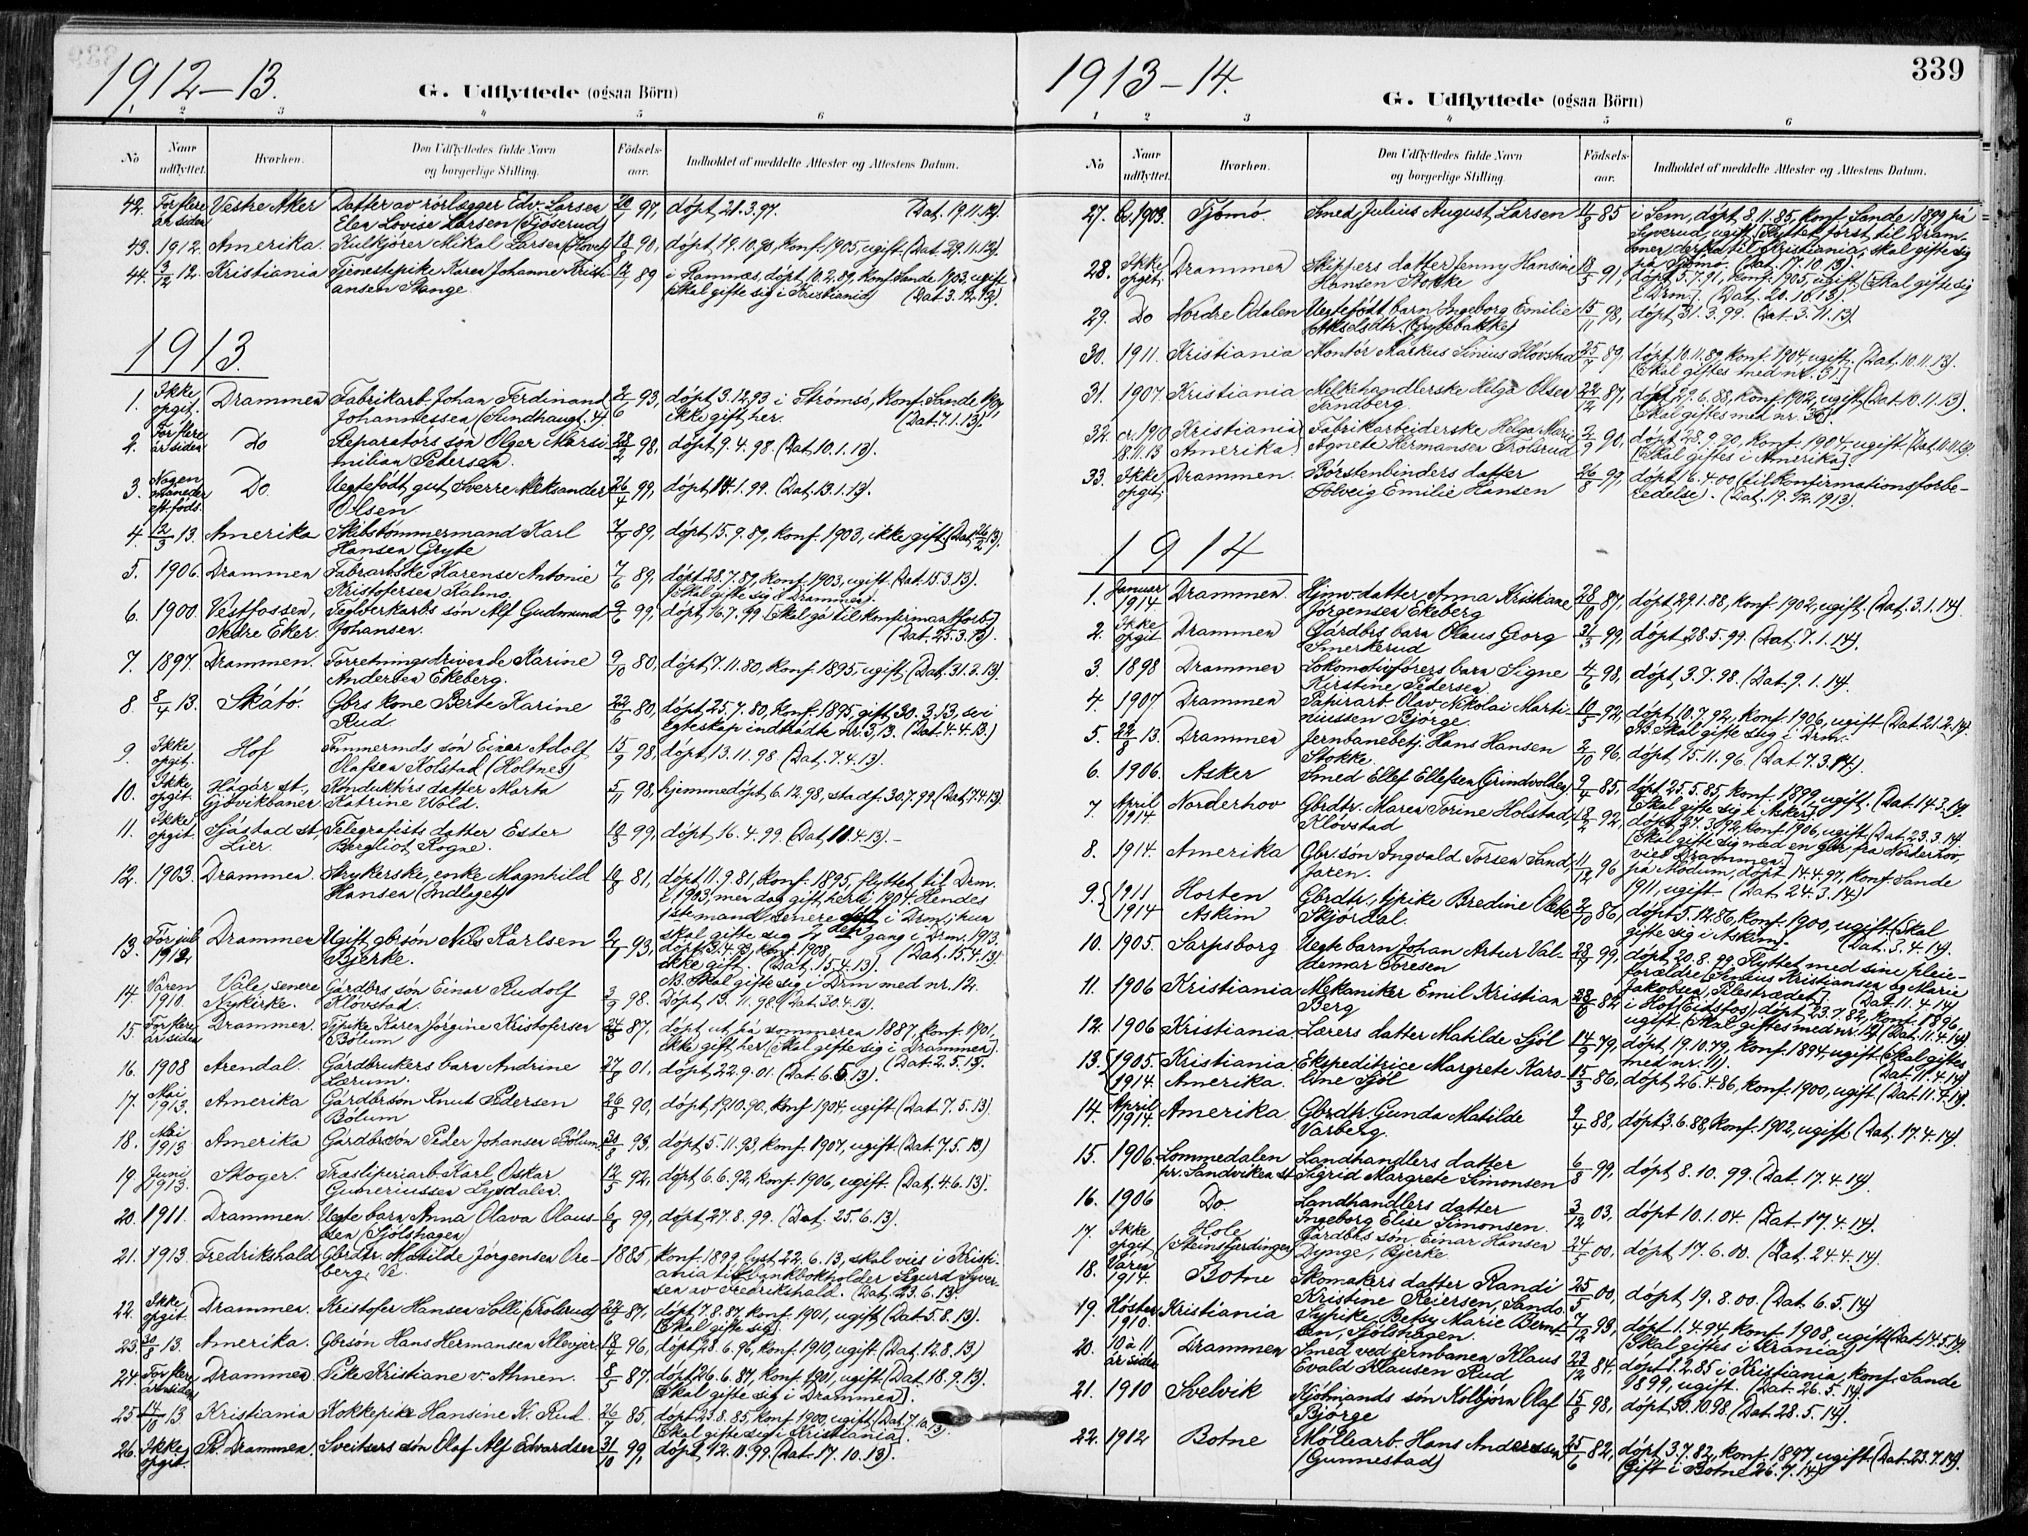 1912–13.
G. Udflyttede (ogsaa Börn)
1 2 3 4 5 6
No
Naar udflyttet.
Hvorhen.
Den Udflyttedes fulde Navn og borgerlige Stilling.
Födsels-aar.
Indholdet af meddelte Attester og Attestens Datum.
42. For flere Vestre Aker Datter av rörlægger Edv. Larsen 97, döpt 21.3.97. (Dat. 19.11.12).
år siden Elen Lovise Larsen (Fjöserud)
43. 1912. Amerika. Kulkjörer Mikal Larsen 90, döpt 19.10.90, konf. 1905, ugift. (Dat. 29.11.12).
44. 3/12 12. Kristiania Tjenestepike Karen Johanne Krist- 89 i Hamnæs, döpt 10.2.89, konf. Sande 1903, ugift
iansen Stange (Skal gifte sig i Kristiania) (Dat. 3.12.12).
1913.
1. Ikke Drammen Fabrikarb. Johan Ferdinand 93, döpt 3.12.93 i Strömsö, konf. Sande
opgit. Johannessen (Sundhaugt. 4) ikke gift her. (Dat. 7.1.13).
2. For flere Do Reparatörs sön Olger Marsi- 98, döpt 9.4.98. (Dat. 10.1.13).
år siden milian Petersen.
3. Nogen Do. Uegtefödt gut Sverre Aleksander 26/4 99, döpt 14.1.99. (Dat. 13.1.13).
måneder Olsen
4. 2/3 13. Amerika Skibstömmermand Karl 89, döpt 15.9.89, konf. 1903, ikke gift (Dat. 26/2 13).
Hansen Gryte
5. 1906. Drammen Karense Antonie 89, döpt 28.7.89, konf. 1903, ugift. (Dat. 15.3.13).
Kristofersen (Skal gifte sig i Drammen).
6. 1900. Vestfossen, Teglverkarbs sön Alf Gudmund 99, döpt 16.7.99 (Skal gå til konfirmantforb.)
Nedre Eker. Johansen. (Dat. 25.3.13).
7. 1897. Drammen. Forretningsdrivende Karine 9/10 80, döpt 7.11.80, konf. 1895, ugift, (Dat. 31.3.13).
Andersen Ekeberg.
8. 8/4 13. Skåtö. Gbrs kone Berte Karine 22/6 80, döpt 25.7.80, konf. 1895, gift 30.3.13, se i
Rud egteskap indtrådte nr. 3, 13. (Dat. 4.4.13.)
9. Ikke Hof Tömmermds sön Einar Adolf 15/9 98, döpt 13.11.98 (Dat. 7.4.13).
opgit. Olafsen Kolstad (Holtnes)
10. Ikke Hågår st., Konduktörs datter Marta 5/11 98, hjemmedöpt 6.12.98, stadf. 30.7.99 (Dat. 7.4.13).
opgit. Gjövikbanen Katrine Wold.
11. Ikke Sjåstad st., Telegrafists datter Ester 99, döpt 16.4.99 (Dat. 11.4.13).
opgit. Lier. Bergliot Rogne.
12. 1903. Drammen. Strykerske, enke Magnhild 81, döpt 11.9.81, konf. 1895, flyttet til Drm.
Hansen (Indlaget) i 1903, men dog gift herfra 1904. Hendes
mand senere död i Drm; hun
skal gifte sig 2den gang i Drm. 1913.
(Dat. 15.4.13).
13. For jul Drammen Ugift gbrsön Nils Karlsen 93, döpt 3.4.93, konf. 1908,
1912 Bjerke. ikke gift. (Dat. 15.4.13).
NB. Skal gifte sig i Drm med nr. 12.
14. Våren Våle, senere Gårdbrs sön Einar Rudolf 98. Döpt 13.11.98 (Dat. 30.4.13).
1910. Nykirke. Klövstad.
15. For flere Drammen. Tjpike Karen Jörgine Kristofersen 87, döpt ut på sommeren 1887, konf. 1901,
år siden Bölum ikke gift her. (Skal gifte sig i Drammen). (Dat. 2.5.13).
16. 1908 Arendal. Gårdbrukers barn Andrine 27/8 01, döpt 22.9.01. (Dat. 6.5.13).
Lærum.
17. Mai 1913. Amerika Gårdbrsön Knut Pedersen 26/8 90, döpt 19.10.90, konf. 1904, ugift. (Dat. 7.5.13).
Bölum
18. Mai 1913 Amerika Gårdbrsön Peder Johansen Bölum 93, döpt 5.11.93, konf. 1907, ugift. (Dat. 7.5.13)
19. Juni 1913. Skoger. Træsliperiarb. Karl Oskar 12/5 92, döpt 6.6.92, konf. 1906, ugift. (Dat. 4.6.13).
Gumeriussen Lysdalen.
20. 1911. Drammen. Uegte barn Anna Olava Olaus- 99, döpt 27.8.99. (Dat. 25.6.13).
sen (Sjölshagen)
21. 1913. Fredrikshald Gbrdtr. Matilde Jörgensen Ore- 1885, konf. 1899, lyst 22.6.13, skal vies i Kristi-
berg, Ve ania til bankbokholder Sigurd Syver-
sen av Fredrikshald. (Dat. 23.6.13).
22. Ikke Drammen. Kristofer Hansen Solli (Trolsrud) 87, döpt 7.8.87, konf. 1901, ugift, (Dat. 5.8.13).
opgit. (Skal gifte sig).
23. 30/8 13. Amerika. Gbrsön Hans Hermansen Klevjer 96, döpt 28.6.96, konf. 1910, ugift. (Dat. 12.8.13)
24. For flere Drammen Pike Kristiane v. Ahnen. 87, döpt 26.6.87, konf. 1901, ugift (Dat. 18.9.13).
år siden (Skal gifte sig i Drammen).
25. 14/10 13 Kristiania Kokkepike Hansine K. Rud. 85, döpt 23.8.85, konf. 1900, ugift, (Dat. 7.10.13).
(Skal gifte sig i Kristiania).
26. Ikke Drammen. Sveitsers sön Olaf Alf Edvardsen 31/10 99, döpt 12.11.99. (Dat. 17.10.13).
opgit.
1913–14.
339
G. Udflyttede (ogsaa Börn)
1 2 3 4 5 6
No
Naar udflyttet.
Hvorhen.
Den Udflyttedes fulde Navn og borgerlige Stilling.
Födsels-aar.
Indholdet af meddelte Attester og Attestens Datum.
27. 1903. Tjömö. Smed Julius August Larsen 85 i Sem, döpt 8.11.85, konf. Sande 1899 på
ugift. (Flyttet först til Dram-
men, derfra til Kristiania, skal gifte sig
på Tjömö. (Dat. 17.10.13).
28. Ikke Drammen Skippers datter Jenny Hansine 91, döpt 5.7.91, konf. 1905, ugift. (Skal gifte sig
opgit. Hansen Stokke i Drm.). (Dat. 20.10.13).
29. Do Nordre Odalen Uegtefödt barn Ingeborg Emilie 15/11 98, döpt 31.3.99. (Dat. 3.11.13).
Akselsdtr. (Grytebakke)
30. 1911. Kristiania Montör Markus Sinius Klövstad 89, döpt 10.11.89, konf. 1904, ugift. (Dat. 10.11.13).
(Skal giftes med nr. 31)
31. 1907. Kristiania Melkehandlerske Helga Olsen 22/2 87, döpt 29.6.88, konf. 1902, ugift, (Dat. 10.11.13).
Sandberg. (Skal giftes med nr. 30).
32. cr. 1910 Kristiania Fabrikarbeiderske Helga Marie 2/9 90, döpt 28.9.90, konf. 1904, ugift (Dat. 11.11.13)
18.11.13 Amerika Agnete Hermansen Trolsrud (Skal giftes i Amerika).
33. Ikke Drammen. Börstenbinders datter 26/8 99, döpt 16.4.00 (til konfirmationsforbe-
opgit. Solveig Emilie Hansen redelse). (Dat. 19.12.1913).
1914
1. Januar Drammen. Hjmv. datter Anna Kristiane 28/10 87, döpt 29.1.88, konf. 1902, ugift. (Dat. 3.1.14).
1914 Jörgensen Ekeberg
2. Ikke Drammen Gårdbrs barn Olaus Georg 99, döpt 28.5.99. (Dat. 7.1.14).
opgit Smerkerud
3. 1898 Drammen Lokomotivförers barn Signe 4/6 98, döpt 3.7.98. (Dat. 9.1.14).
Kirstine Pedersen
4. 1907 Drammen Papirarb. Olav Nikolai Marti- 10/5 92, döpt 10.7.92, konf. 1906, ugift (Dat. 21.2.14).
niussen Bjorge. NB. Skal gifte seig i Drm.
5. 22/8 13. Drammen Jernbanebetj. Hans Hansen 2/10 96, döpt 15.11.96. (Dat. 7.3.14).
Stokke.
6. 1906. Asker Smed Ellef Ellefsen (Grindvolden) 9/4 85, döpt 25.5.85, konf. 1899, ugift. (Dat. 14.3.14).
(Skal gifte sig i Asker).
7. April Norderhov Gbrdtr. Maren Torine Holstad, 92, döpt 27.3.92, konf. 1906, ugift. (Dat. 23.3.14)
1914 Klövstad (Skal gifte sig med en gbr. fra Norderhov,
vies i Drammen.)
8. 1914. Amerika Gbr.sön Ingvald Torsen Sand, 11/12 96 på Modum, döpt 14.4.97, konf. Sande
Jaren. 1911, ugift (Dat. 24.3.14)
9. 1911 Horten Gbrdtr., tjpike Bredine Olette 2/10 86, döpt 5.12.86, konf. 1900, ugift. (Skal
1914 Askim Skjördal. gifte sig i Askim. (Dat. 3.4.14).
10. 1905. Sarpsborg Uegte barn Johan Artur Val- 99, döpt 20.8.99. Flyttet med sine pleie-
demar Toresen forældre Kristiansen og Marie
Jakobsen, Pilestrædet. (Dat. 11.4.14)
11. 1906 Kristiania Mekaniker Emil Kristian 82 i Hof (Eidsfos), döpt 23.7.82, konf. 1896,
Berg ugift (Skal giftes med nr. 12) (Dat. 11.4.14)
12. 1906 Kristiania Lærers datter Matilde Sjöl 14/9 79, döpt 19.10.79, konf. 1894 ugift (Skal giftes
med nr. 11). (Dat. 11.4.14)
13. 1905. Kristiania Ekspeditrice Margrete Karo- 15/3 86, döpt 26.4.86, konf. 1900, ugift. (Dat. 11.4.14).
1914. Amerika. line Sjöl
14. April Amerika Gbrdtr. Gunda Matilde 9/4 88, döpt 3.6.88, konf. 1902, ugift. (Dat. 17.4.14).
1914. Varberg.
15. 1906 Lommedalen Landhandlers datter 6/8 99, döpt 8.10.99 (Dat. 17.4.14).
pr. Sandviken st. Sigrid Margrete Simonsen
16. 1906 Do. Landhandlers datter 3/12 03, döpt 10.1.04. (Dat. 17.4.14).
Ingeborg Elise Simonsen.
17. Ikke Hole Gårdbrs sön Einar Hansen 00, döpt 17.6.00. (Dat. 24.4.14).
opgit. (Steinsfjerdingen) Dynge, Bjerke
18. Våren Botne Skomakers datter Randi 25/5 00, döpt 19.8.00. (Dat. 6.5.14)
1914. Kristine Reiersen, Sando.
19. Hösten Kristiania Sypike Betsy Marie Bernt- 7/12 93, döpt 1.4.94, konf. 1908, ugift (Dat. 14.5.14).
1910 sen, Sjölshagen. (Skal giftes i Krania)
20. 10 à 11 Drammen Smed ved jernbanen Klaus 23/12 84, döpt 1.2.85 i Kristiania, konf. Sande
år siden Evald Klausen Rud 1899, ugift. (Dat. 26.5.14)
21. 1910 Svelvik Kjöbmands sön Kolbjörn Olaf 15/8 98, döpt 30.10.98 (Dat. 28.5.14).
Bjorge
22. 1912 Botne Möllearb. Hans Anderssen 25/6 82, döpt 3.7.82, konf. 1897, ugift. (Dat. 23.7.14).
(Gunnestad) (Gift i Botne 26.7.14)